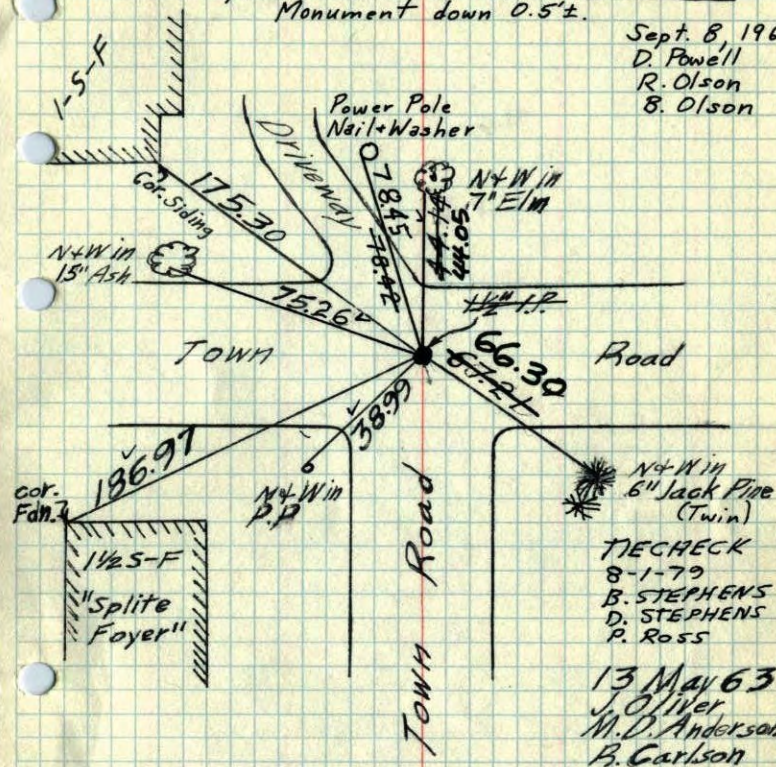 Monument down 0.5'±.
Sept. 8, 196
D. Powell
R. Olson
B. Olson
1-S-F
Power Pole
Nail+Washer
Driveway
N+W in
7" Elm
Cor. Siding
175.30
78.45
78.42
44.14
44.05
N+W in
15" Ash
75.26
1½" I.P.
Town
Road
66.30
67.21
38.99
186.97
cor.
Fdn.
N+W in
P.P
N+W in
6" Jack Pine
(Twin)
1½ S-F
"Splite
Foyer"
Town Road
RECHECK
8-1-79
B. STEPHENS
D. STEPHENS
P. ROSS
13 May 63
J. Oliver
M.D. Anderson
R. Carlson